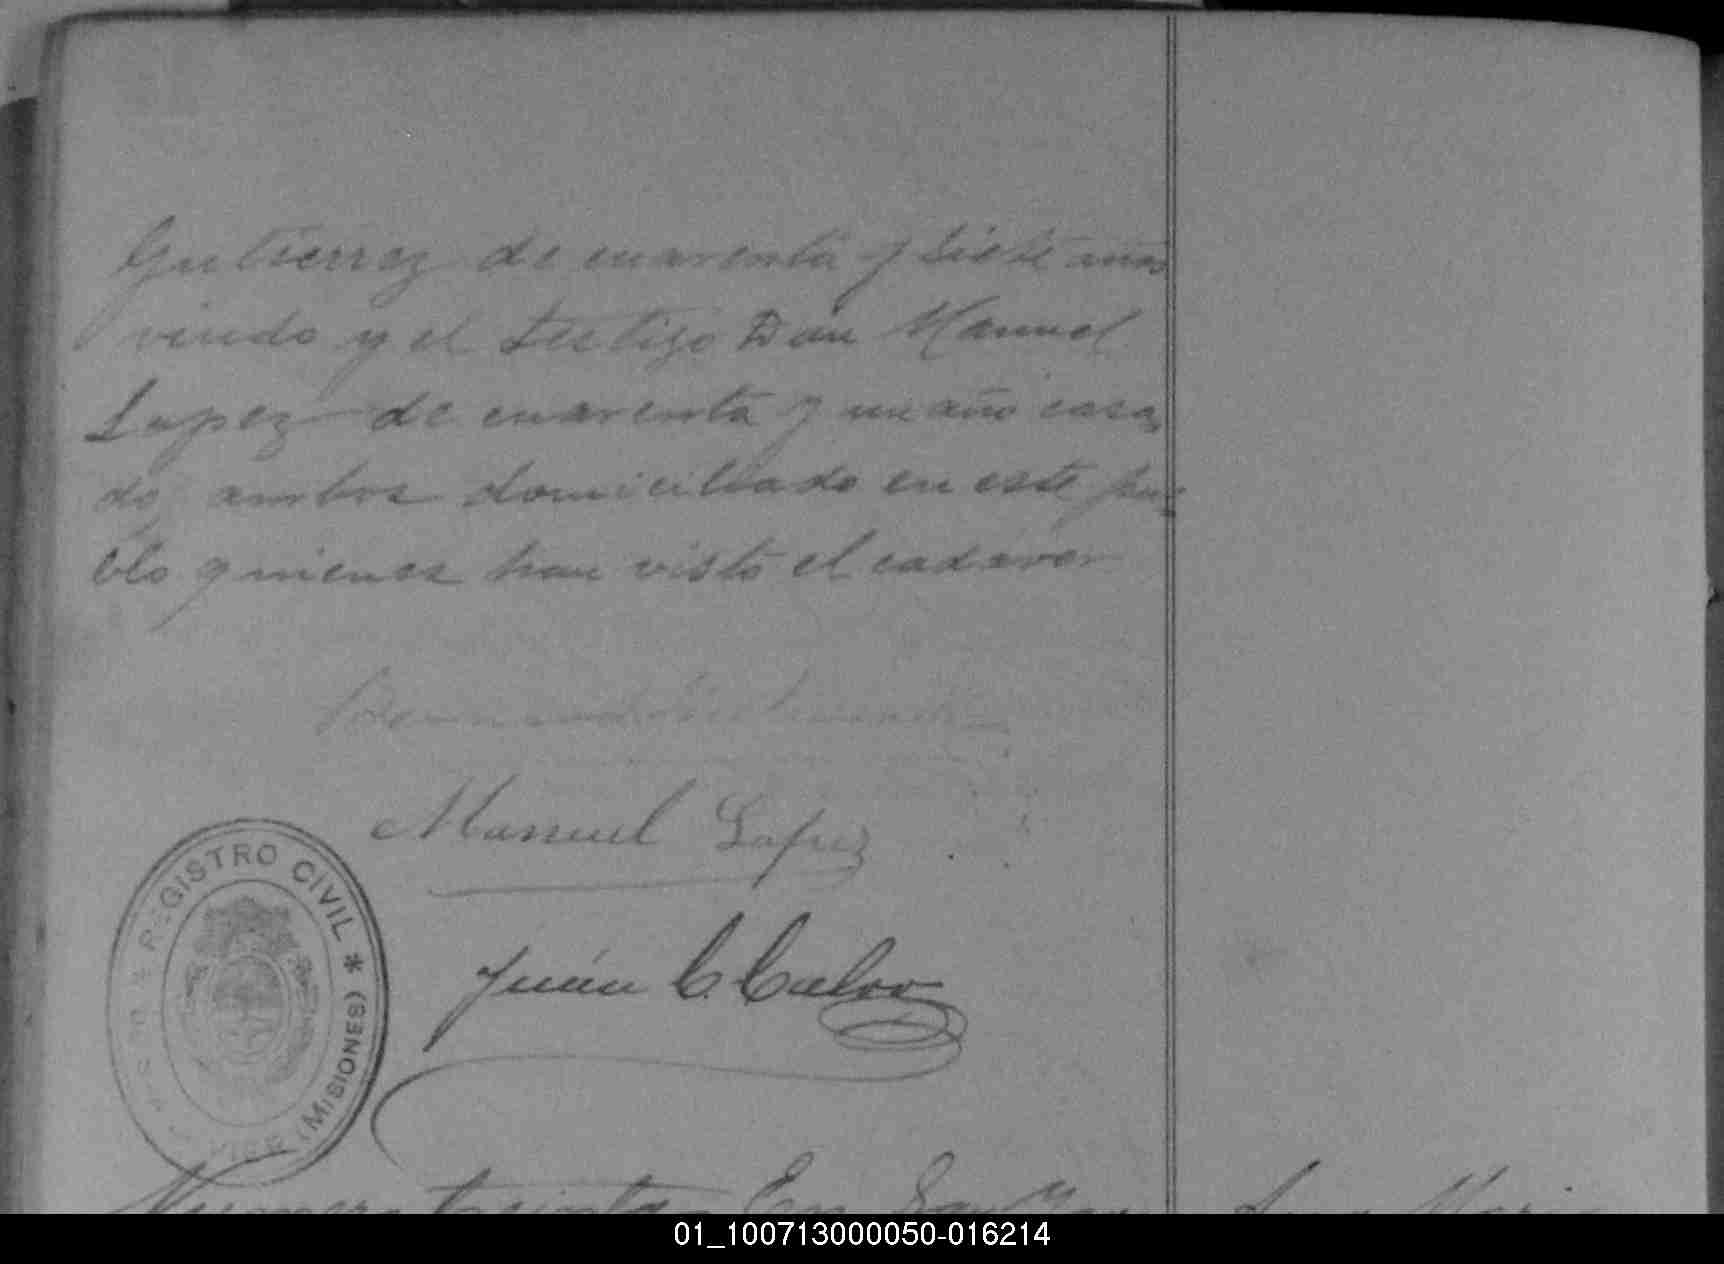 Gutierrez de cuarenta y siete años
viudo y el testigo Don Manuel
Lopez de cuarenta y un año casa
do, ambos domiciliado en este pue
blo quienes han visto el cadaver
Manuel Lopez
Juán C. Calvo
REGISTRO CIVIL * (MISIONES)
Numero treinta En San
01_100713000050-016214